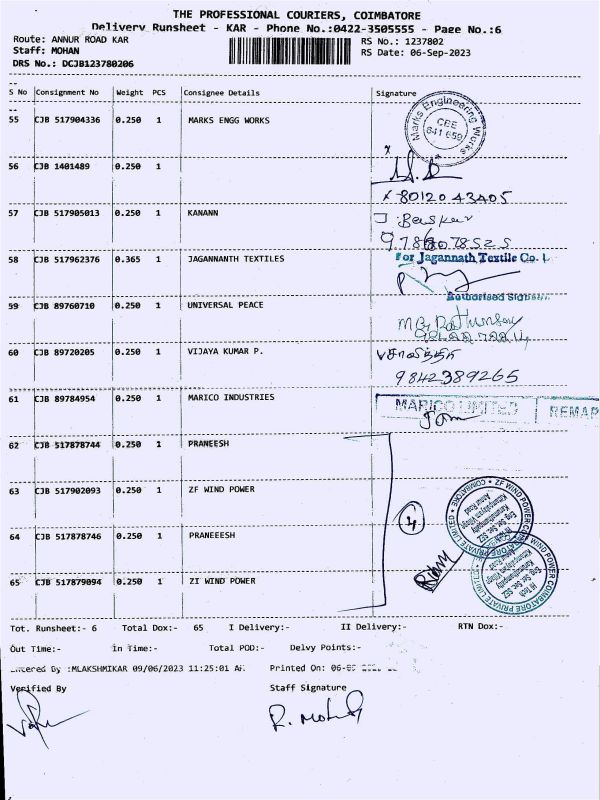 THE PROFESSIONAL COURIERS, COIMBATORE
Delivery Runsheet - KAR - Phone No.:0422-3505555 - Page No.:6
Route: ANNUR ROAD KAR RS No.: 1237802
Staff: MOHAN RS Date: 06-Sep-2023
DRS No.: DCJB123780206
S No Consignment No Weight PCS Consignee Details Signature
55 CJB 517904336 0.250 1 MARKS ENGG WORKS
Marks Engineering Works
CBE
641 659
56 CJB 1401489 0.250 1
x 80120 43405
57 CJB 517905013 0.250 1 KANANN
J. Baskar
58 CJB 517962376 0.365 1 JAGANNANTH TEXTILES
For Jagannath Textile Co. L
Authorised Signato
59 CJB 89760710 0.250 1 UNIVERSAL PEACE
60 CJB 89720205 0.250 1 VIJAYA KUMAR P.
9842389265
61 CJB 89784954 0.250 1 MARICO INDUSTRIES
MARICO LIMITED REMAR
62 CJB 517878744 0.250 1 PRANEESH
63 CJB 517902093 0.250 1 ZF WIND POWER
ZF WIND POWER COIMBATORE PRIVATE LIMITED
4
64 CJB 517878746 0.250 1 PRANEEESH
ZF WIND POWER COIMBATORE PRIVATE LIMITED
65 CJB 517879094 0.250 1 ZI WIND POWER
Tot. Runsheet:- 6 Total Dox:- 65 I Delivery:- II Delivery:- RTN Dox:-
Out Time:- In Time:- Total POD:- Delvy Points:-
Entered By :MLAKSHMIKAR 09/06/2023 11:25:01 AM Printed On: 06-
Verified By Staff Signature
R. Mohan